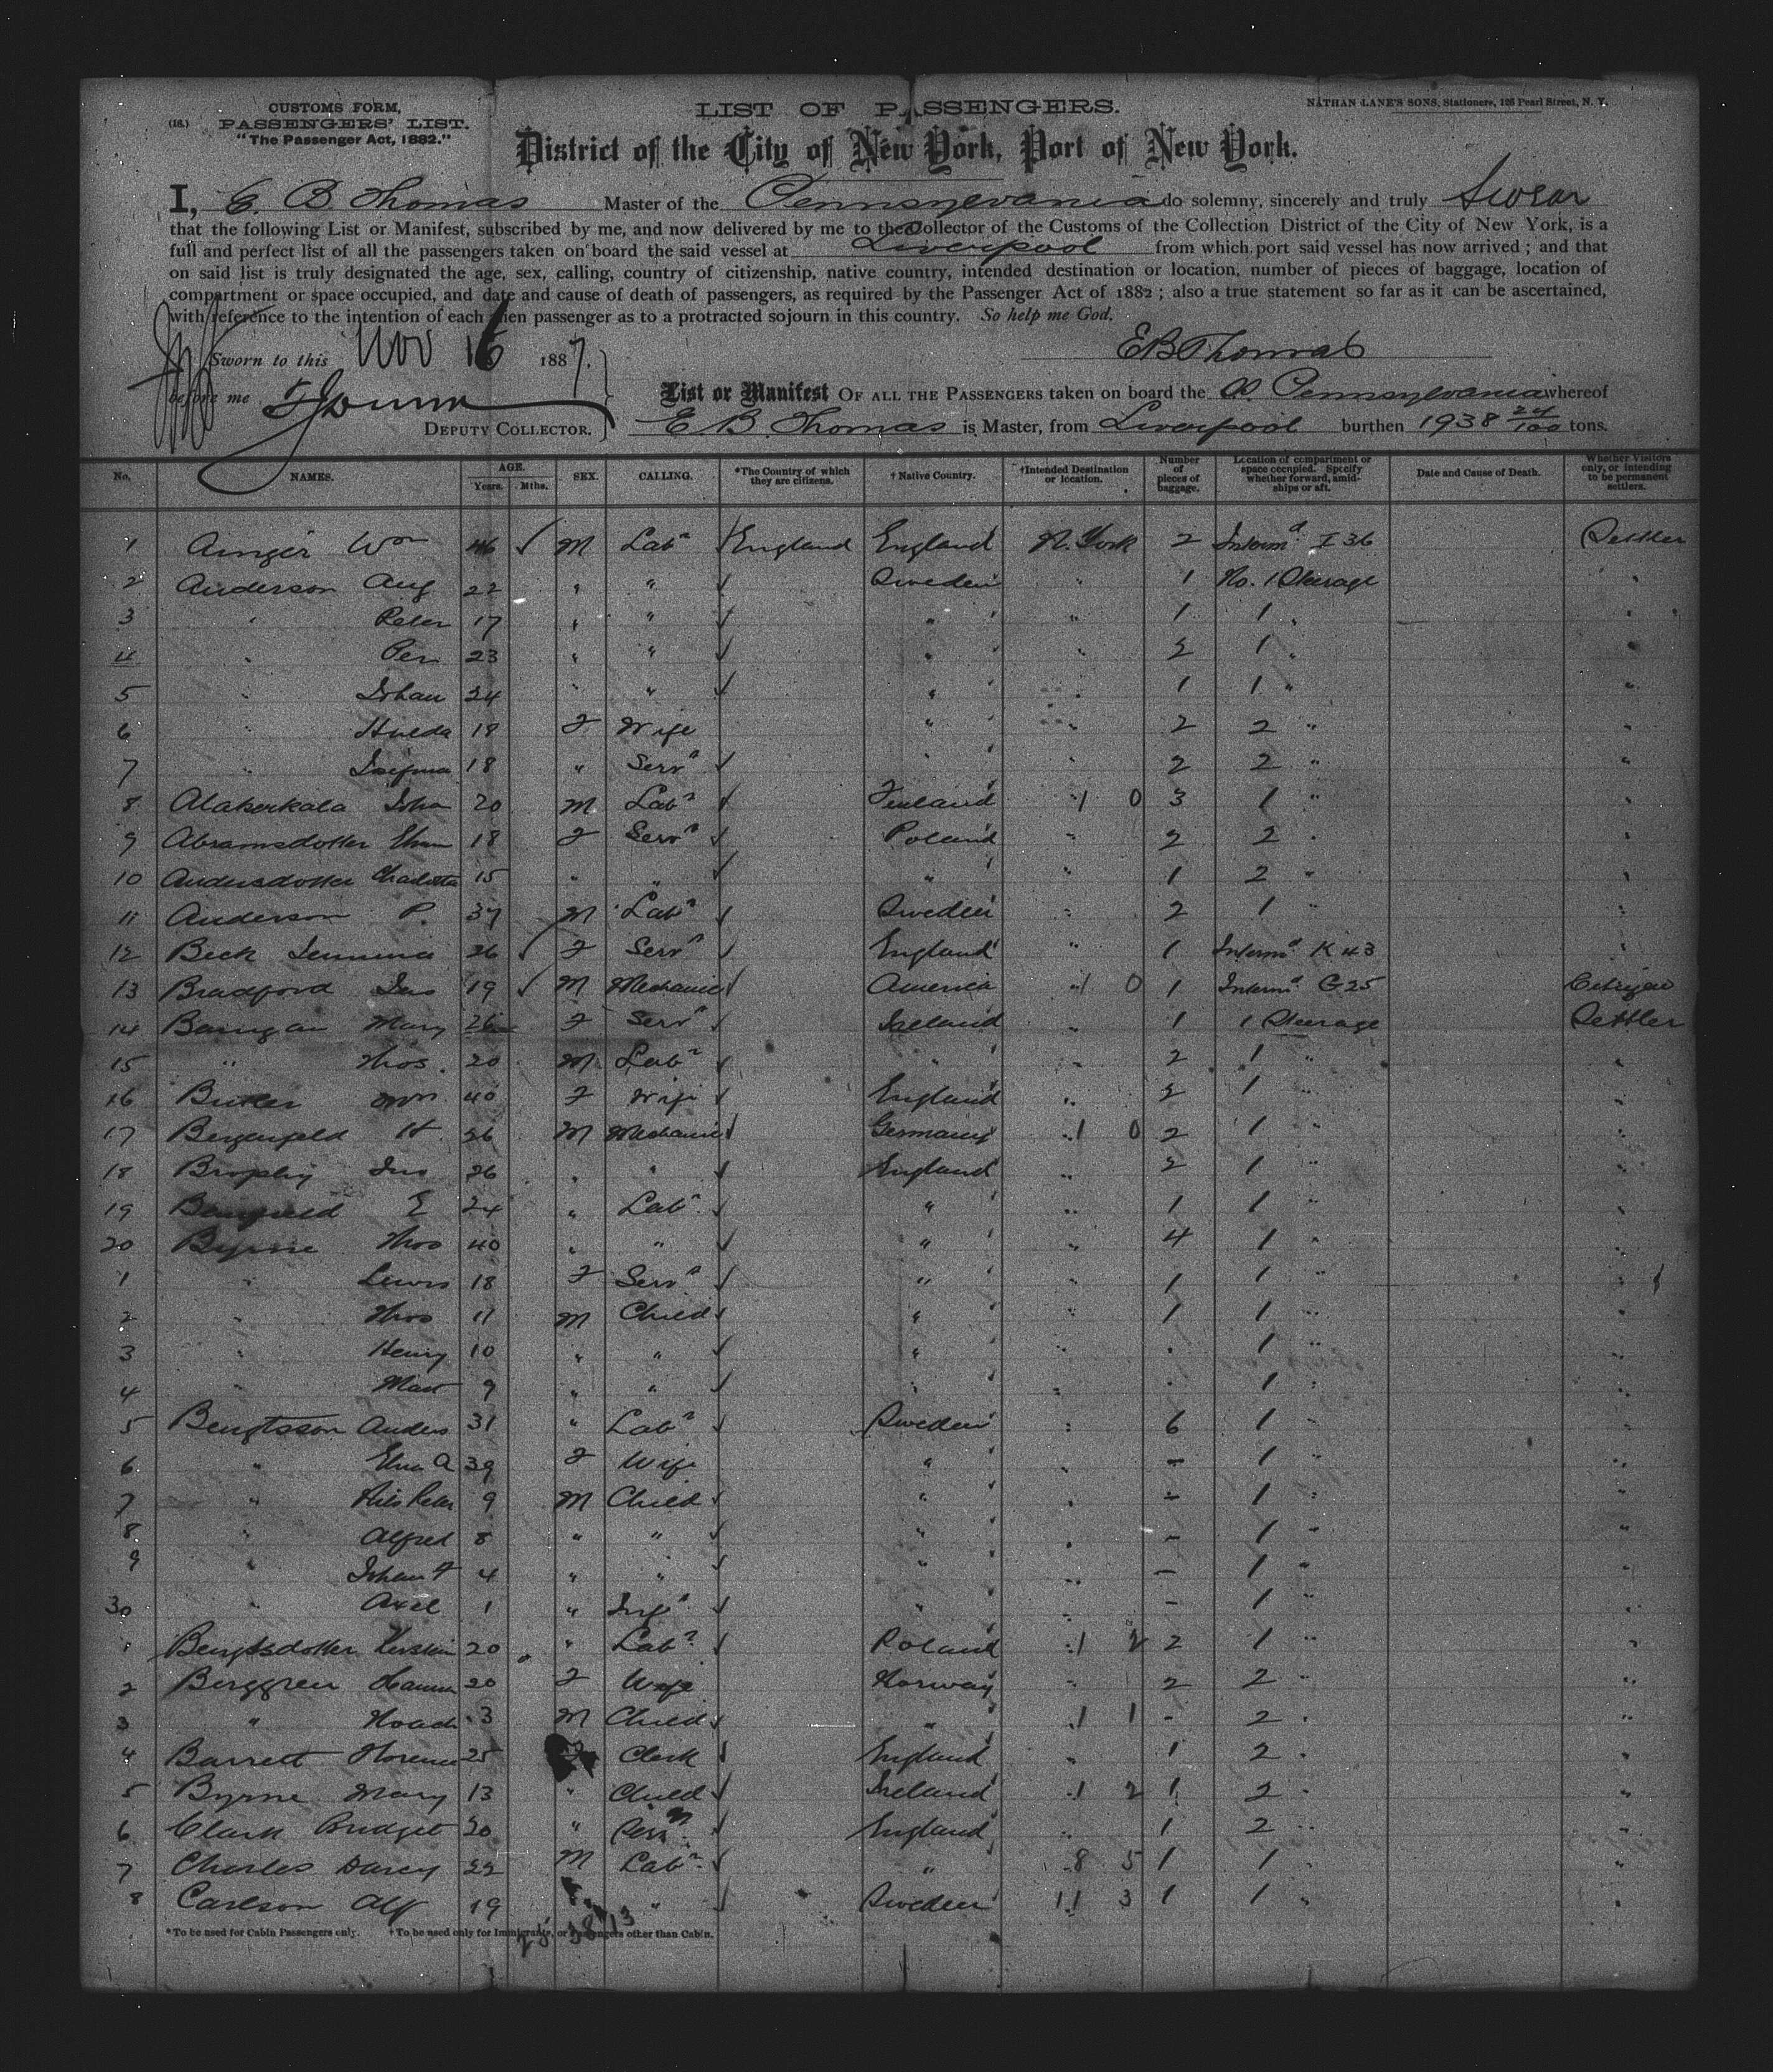 CUSTOMS FORM,
(16.) PASSENGERS' LIST.
"The Passenger Act, 1882."
LIST OF PASSENGERS.
NATHAN LANE'S SONS, Stationers, 126 Pearl Street, N. Y.
District of the City of New York, Port of New York.
I, E. B. Thomas Master of the Pennsylvania do solemny, sincerely and truly Swear
that the following List or Manifest, subscribed by me, and now delivered by me to the Collector of the Customs of the Collection District of the City of New York, is a
full and perfect list of all the passengers taken on board the said vessel at Liverpool from which port said vessel has now arrived; and that
on said list is truly designated the age, sex, calling, country of citizenship, native country, intended destination or location, number of pieces of baggage, location of
compartment or space occupied, and date and cause of death of passengers, as required by the Passenger Act of 1882; also a true statement so far as it can be ascertained,
with reference to the intention of each alien passenger as to a protracted sojourn in this country. So help me God.
Sworn to this Nov 16 1887.
EBThomas
before me
DEPUTY COLLECTOR.
List or Manifest OF ALL THE PASSENGERS taken on board the Pennsylvania whereof
E. B. Thomas is Master, from Liverpool burthen 1938 24/100 tons.
No. NAMES. AGE. Years. Mths. SEX. CALLING. *The Country of which they are citizens. †Native Country. †Intended Destination or location. Number of pieces of baggage. Location of compartment or space occupied. Specify whether forward, amidships or aft. Date and Cause of Death. Whether Visitors only, or intending to be permanent settlers.
1 Ainger Wm 46 M Labr England England N. York 2 Intermd I 36 Settler
2 Anderson Aug 22 " " Sweden " 1 No. 1 Steerage "
3 " Peter 17 " " " " 1 1 " "
4 " Per 23 " " " " 2 1 " "
5 " Johan 24 " " " " 1 1 " "
6 " Hulda 18 F Wife " " 2 2 " "
7 " 18 " Servt " " 2 2 " "
8 Alakerkala 20 M Labr Finland 1 0 3 1 " "
9 Abramsdotter 18 F Servt Poland " 2 2 " "
10 Andersdotter Charlotta 15 " " " " 1 2 " "
11 Anderson P. 37 M Labr Sweden " 2 1 " "
12 Beck Jemima 26 F Servt England " 1 Intermd K 43 "
13 Bradford Jas 19 M Mechanic America 1 0 1 Intermd G 25 Citizen
14 Mary 26 F Servt Ireland " 1 1 Steerage Settler
15 " Thos. 20 M Labr " " 2 1 " "
16 Butler Mrs. 40 F Wife England " 2 1 " "
17 Bergenfeld H. 26 M Mechanic Germany 1 0 2 1 " "
18 Brophy Jno 26 " " England " 2 1 " "
19 E 24 " Labr " " 1 1 " "
20 Byrne Thos 40 " " " " 4 1 " "
1 " 18 F Servt " " 1 1 " "
2 " Thos 11 M Child " " 1 1 " "
3 " Henry 10 " " " " " 1 " "
4 " 9 " " " " " 1 " "
5 Bengtsson Anders 31 " Labr Sweden " 6 1 " "
6 " A 39 F Wife " " - 1 " "
7 " Nils Peter 9 M Child " " - 1 " "
8 " Alfred 8 " " " " - 1 " "
9 " Johan F 4 " " " " - 1 " "
30 " Axel 1 " Inft " " - 1 " "
1 Bengtsdotter Kerstin 20 " Labr Poland 1 2 1 " "
2 Berggren 20 F Wife Norway " 2 2 " "
3 " 3 M Child " 1 1 - 2 " "
4 Barrett Florence 25 F Clerk England " 1 2 " "
5 Byrne Mary 13 " Child Ireland 1 2 1 2 " "
6 Clark Bridget 20 " Servt England " 1 2 " "
7 Charles Darcy 22 M Labr " 8 5 1 1 " "
8 Carlson Alf 19 " Sweden 11 3 1 1 " "
*To be used for Cabin Passengers only. †To be used only for Immigrants, or Passengers other than Cabin.